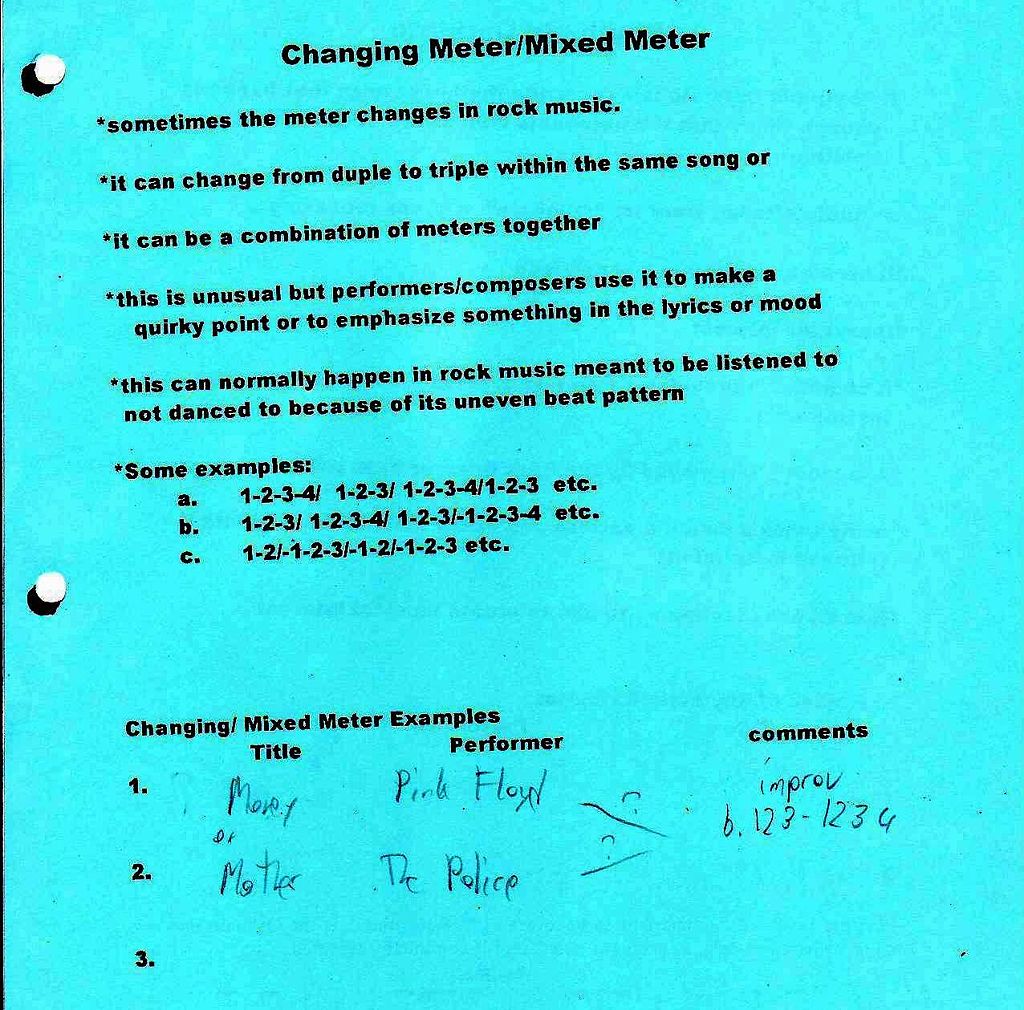 Changing Meter/Mixed Meter
*sometimes the meter changes in rock music.
*it can change from duple to triple within the same song or
*it can be a combination of meters together
*this is unusual but performers/composers use it to make a
quirky point or to emphasize something in the lyrics or mood
*this can normally happen in rock music meant to be listened to
not danced to because of its uneven beat pattern
*Some examples:
a. 1-2-3-4/ 1-2-3/ 1-2-3-4/1-2-3 etc.
b. 1-2-3/ 1-2-3-4/ 1-2-3/-1-2-3-4 etc.
c. 1-2/-1-2-3/-1-2/-1-2-3 etc.
Changing/ Mixed Meter Examples
Title Performer comments
1. Money Pink Floyd ? improv
b. 123-1234
or
2. Mother The Police ?
3.